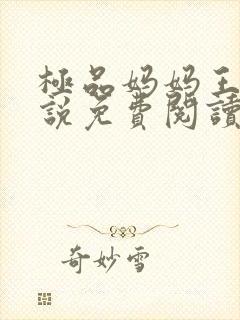 極品妈妈王
說免費閱讀
奇妙雪